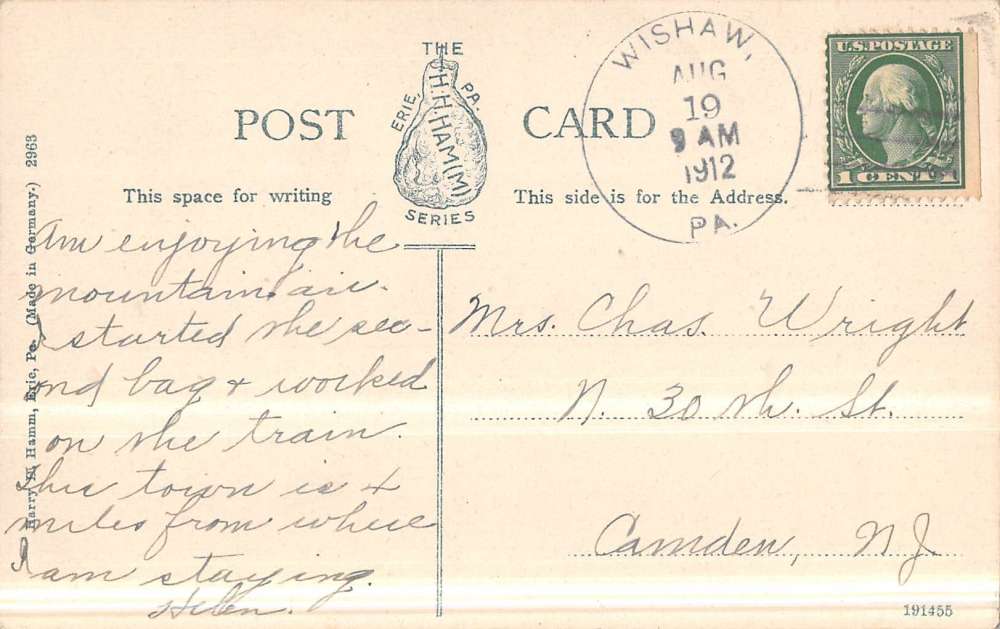 THE
H. H. HAM(M)
ERIE, PA.
SERIES
POST CARD
This space for writing
This side is for the Address.
WISHAW,
AUG
19
9 AM
1912
PA.
U.S. POSTAGE
1 CENT 1
Harry H. Hamm, Erie, Pa. (Made in Germany.) 2963
Am enjoying the
mountain air.
I started the sec-
ond bag & worked
on the train.
This town is 4
miles from where
I am staying.
Helen.
Mrs. Chas. Wright
N. 30 th. St.
Camden, N J
191455